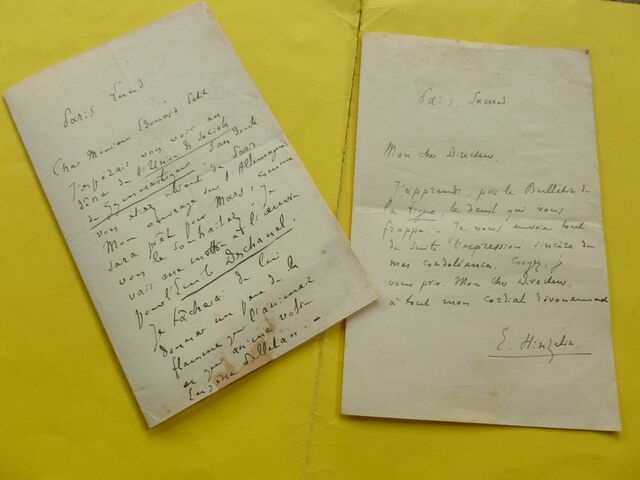 Paris. Lundi.
Cher Monsieur Edouard Petit
J'espérais vous voir au
dîner de l'Union des Sociétés
de Gymnastique. Sans doute
vous étiez absent de Paris
Mon ouvrage sur l'Allemagne
sera prêt pour Mars: comme
vous le souhaitez. Je
vais me mettre à l'œuvre
pour l'Emile Deschanel.
Je tâcherai de lui
donner un peu de la
flamme qui l'animait
et qui anime votre
Eugène Pelletan. -
Paris. Samedi
Mon cher Directeur.
J'apprends, par le Bulletin de
la Ligue, le deuil qui vous
frappe. - Je vous envoie tout
de suite l'expression sincère de
mes condoléances. Croyez, je
vous prie. Mon cher Directeur,
à tout mon cordial dévouement
E. Hinzelin